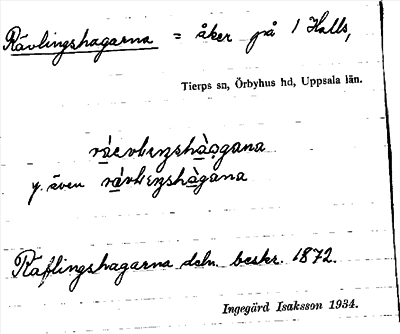 Rävlingshagarna = åker på 1 Halls,
Tierps sn, Örbyhus hd, Uppsala län.
även
Räflingshagarna deln. beskr. 1872.
Ingegärd Isaksson 1934.